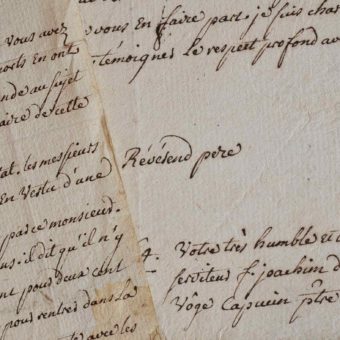 vous avez
en ont
au sujet
de cette
les messieurs
En Vertu d'une
par ce monsieur.
il dit qu'il n'y
pour deux cent
pour rentrer dans la
avec les
vous en faire part. je suis
témoigner le respect profond
Révérend pere
Votre très humble et
serviteur f. joachim
Capucin ptre